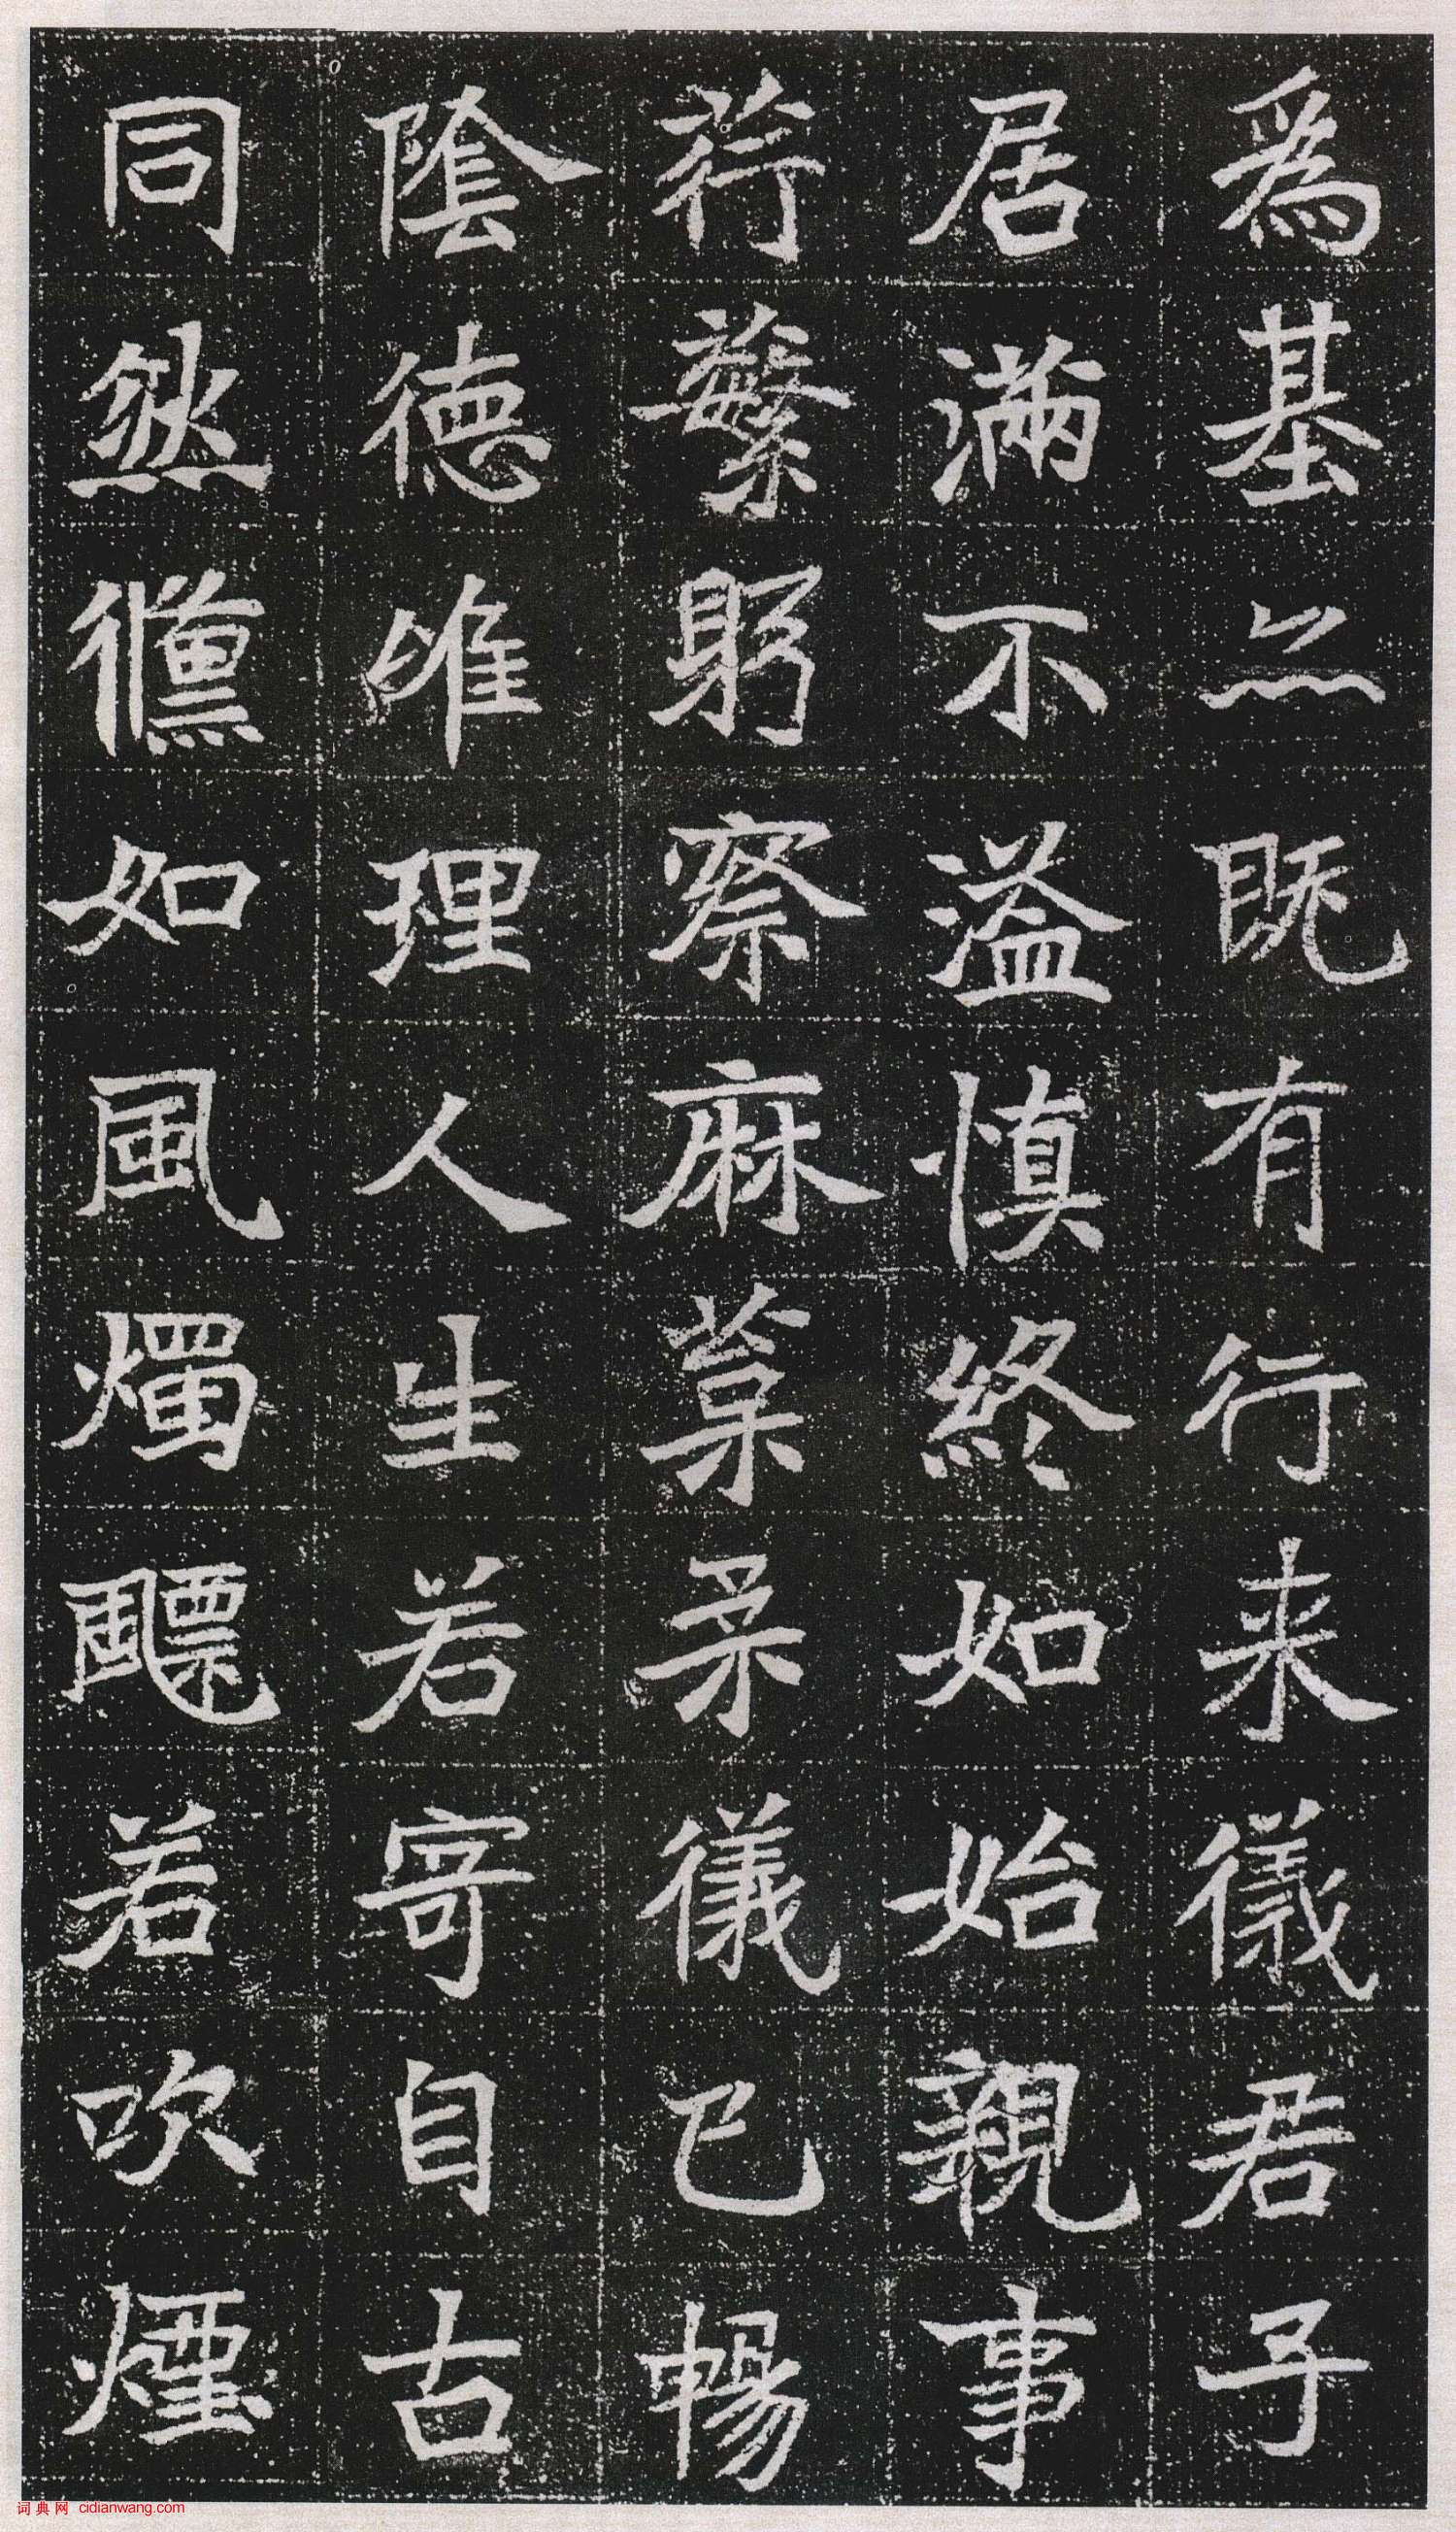 為基亦既有行来儀君子
居滿不溢慎終如始親事
荇蘩躬察麻葈柔儀已暢
陰德唯理人生若寄自古
同然儻如風燭飃若吹煙
词典网 cidianwang.com